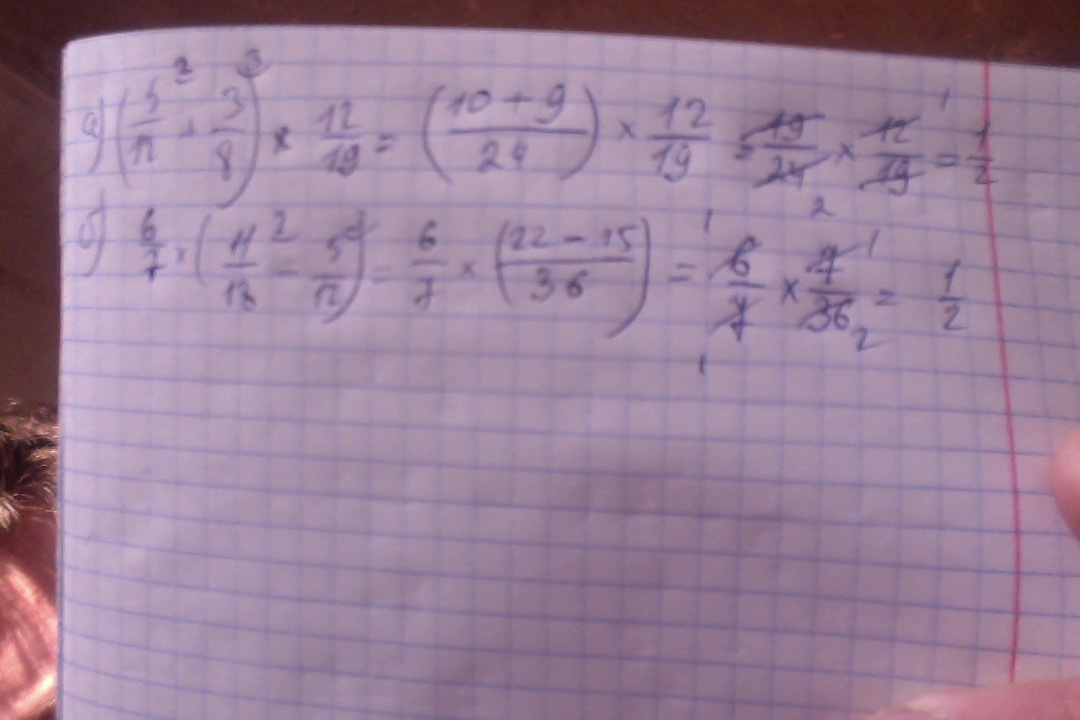 а) (5/12 ² + 3/8 ³) × 12/19 = (10 + 9 / 24) × 12/19 = 19/24 ₂ × 12/19 ¹ = 1/2
б) 6/7 × (11/18 ² - 5/12 ³) = 6/7 × (22 - 15 / 36) = ¹ 6/7 ₁ × 7/36 ¹ ₂ = 1/2